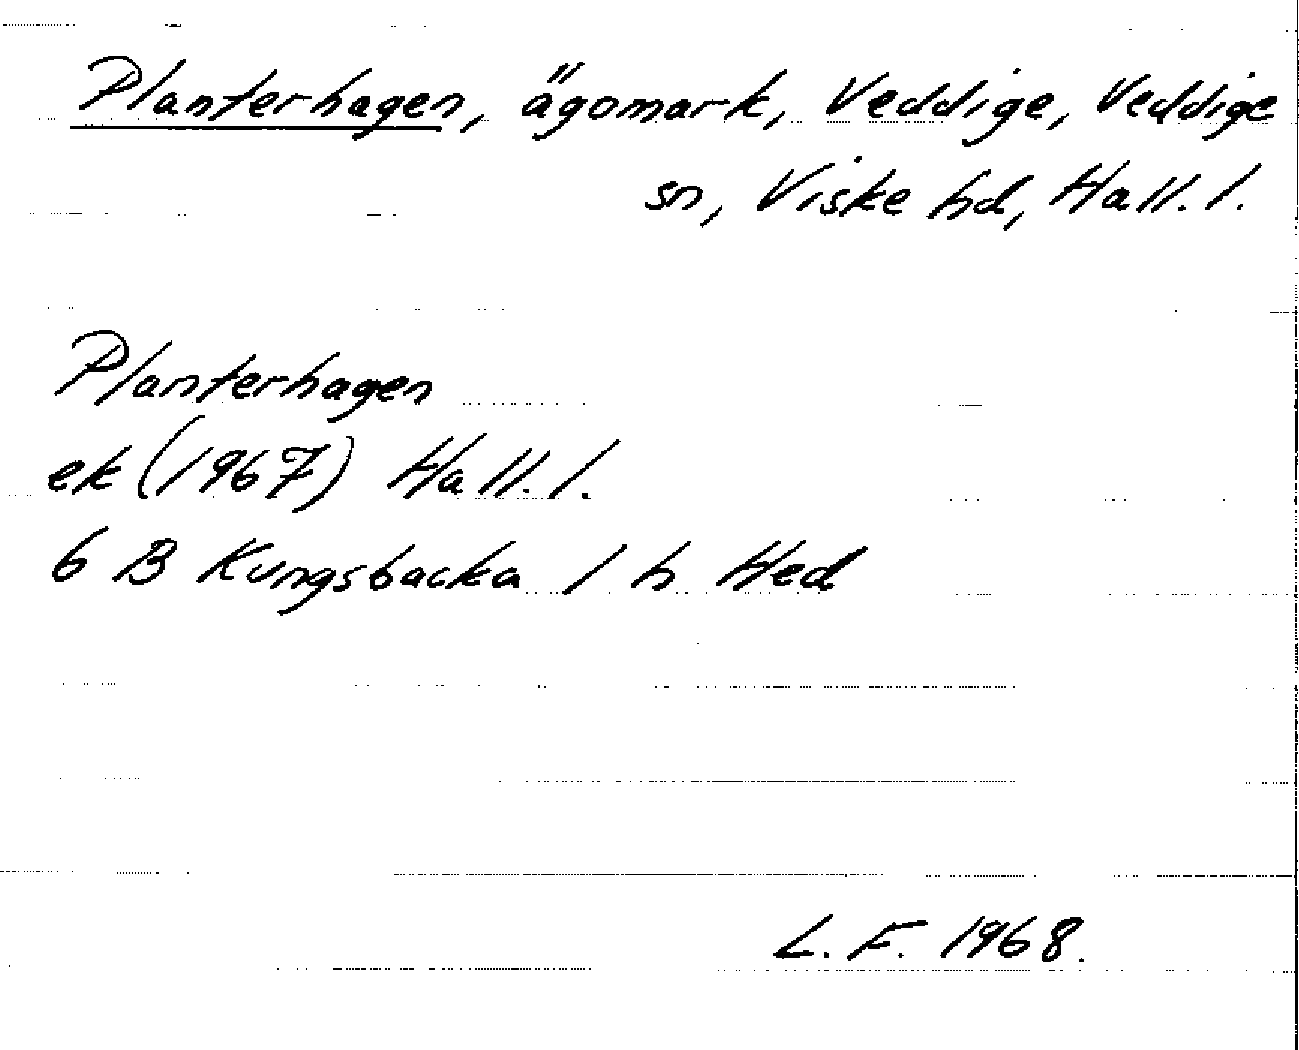 Planterhagen, ägomark, Veddige, Veddige
sn, Viske hd, Hall. l.
Planterhagen
ek (1967) Hall. l.
6 B Kungsbacka 1 h Hed
L. F. 1968.